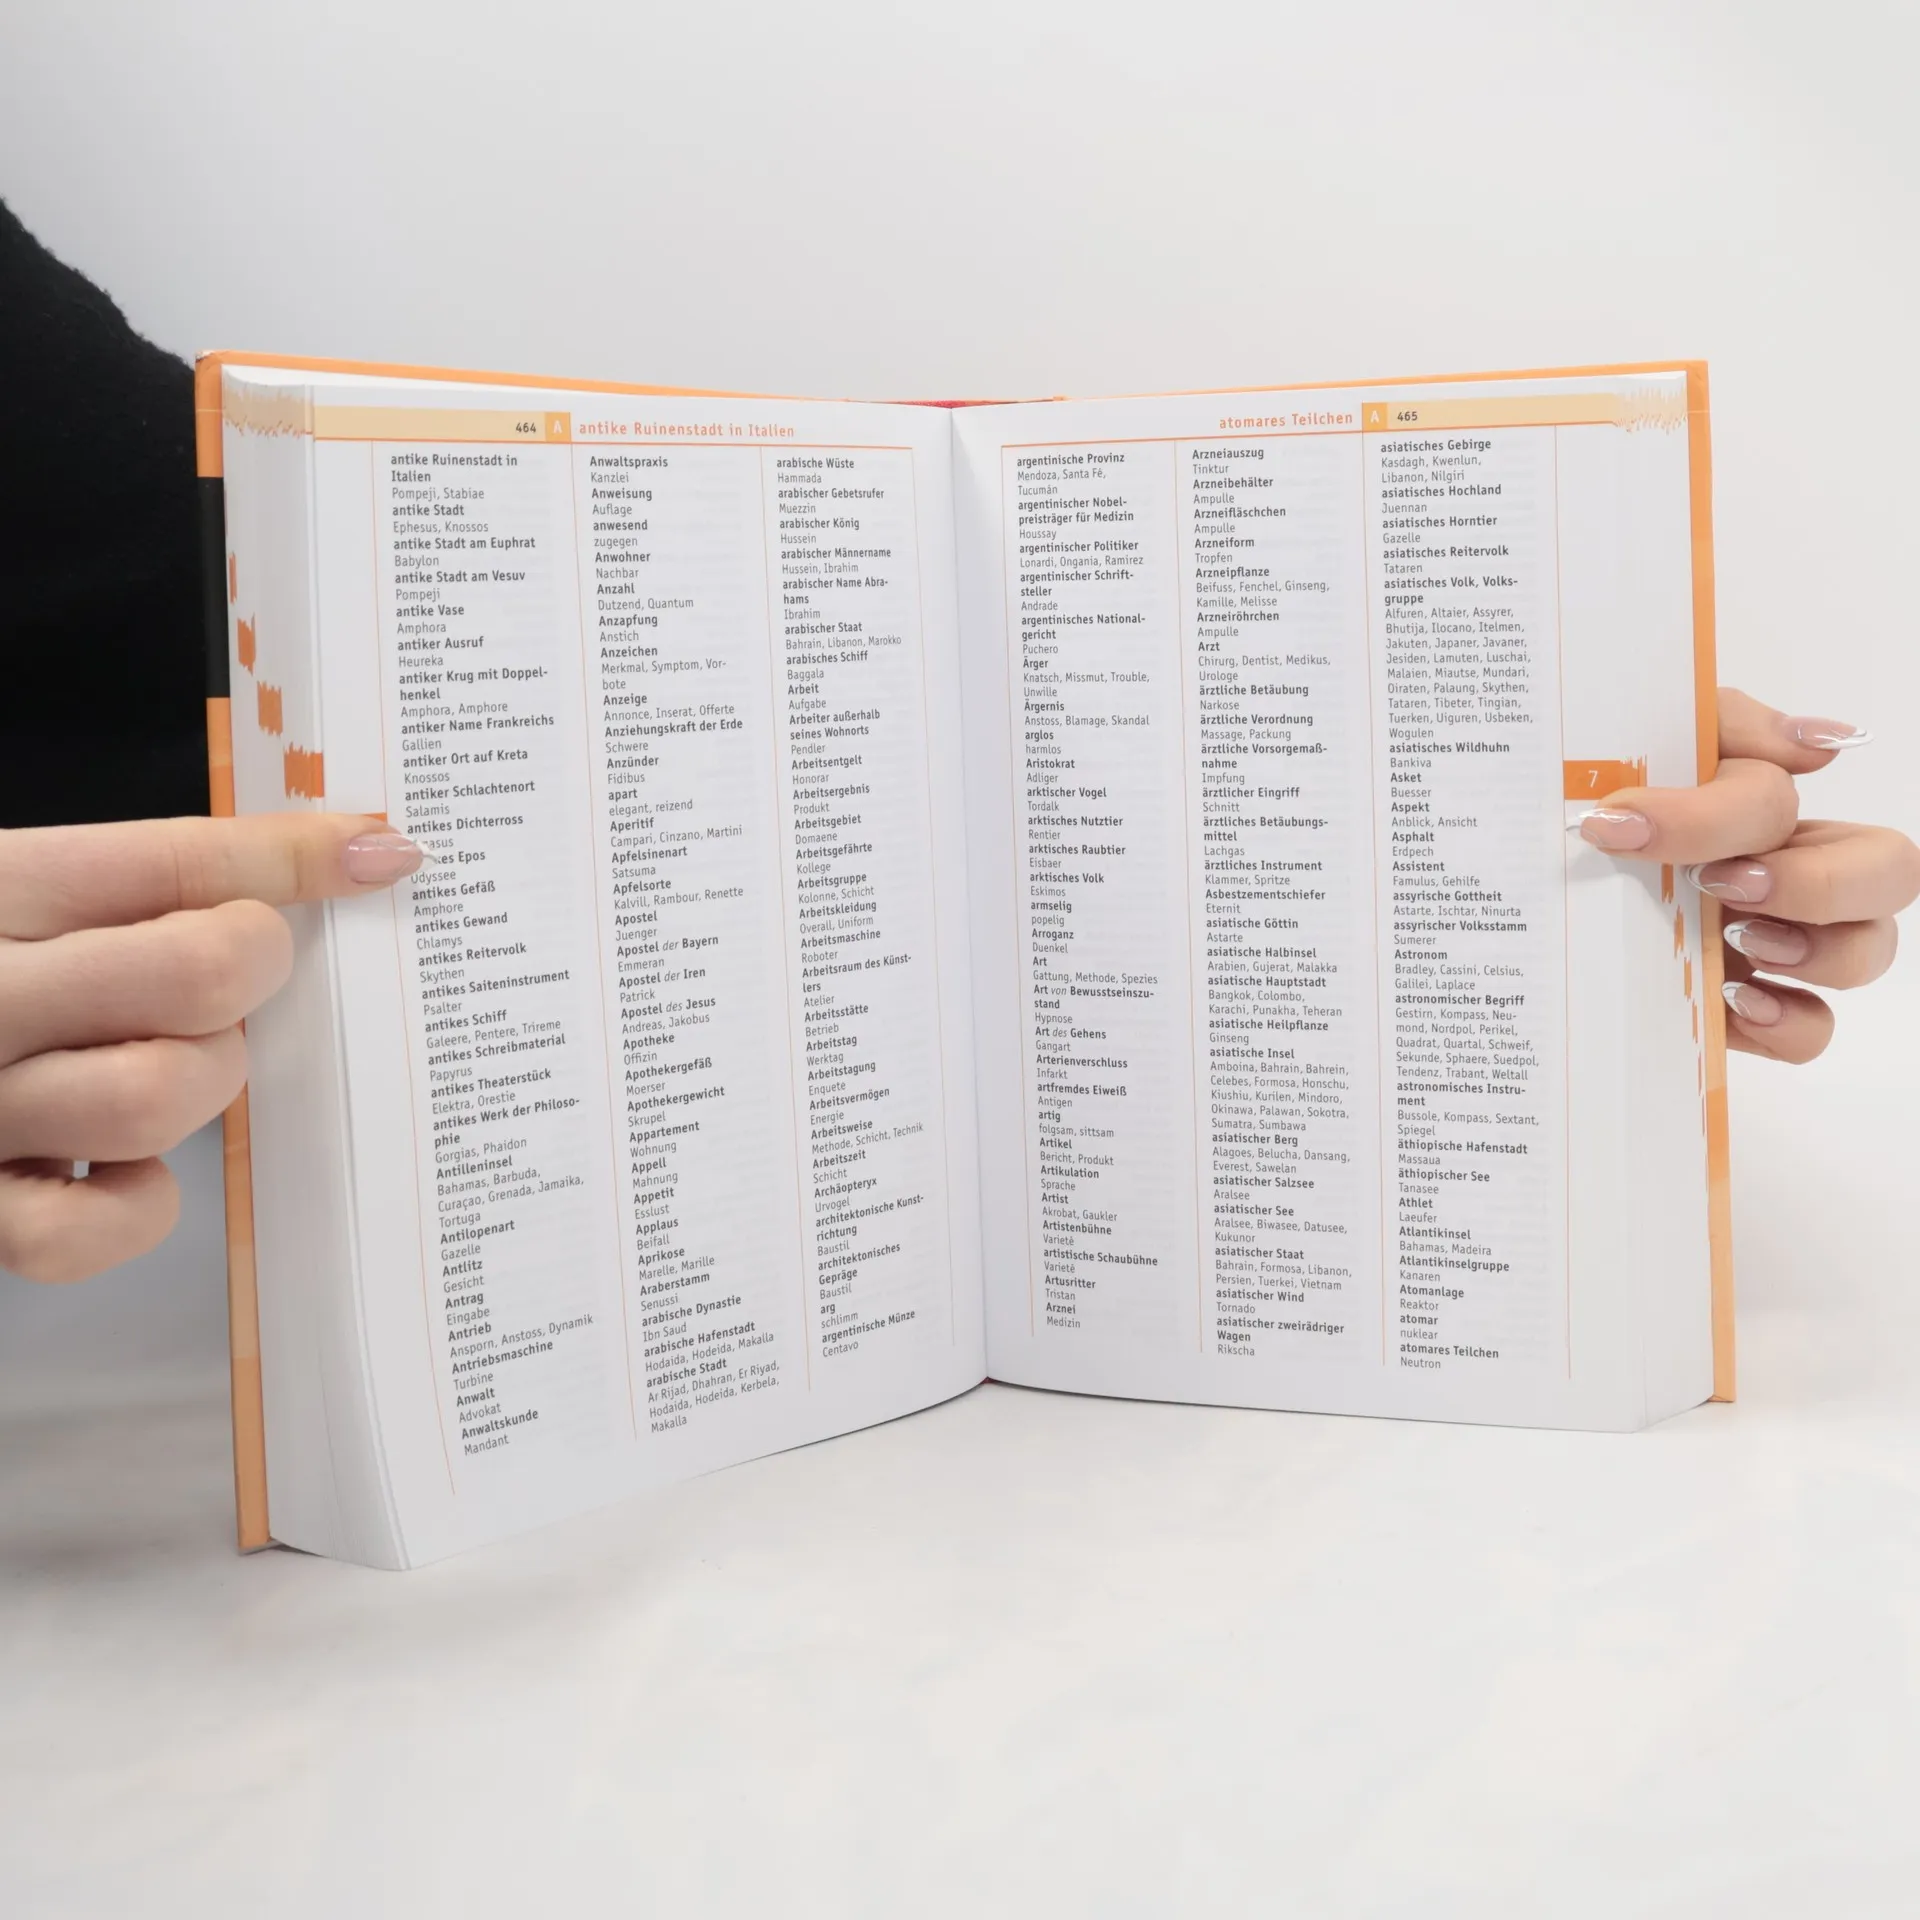 464 A antike Ruinenstadt in Italien
antike Ruinenstadt in
Italien
Pompeji, Stabiae
antike Stadt
Ephesus, Knossos
antike Stadt am Euphrat
Babylon
antike Stadt am Vesuv
Pompeji
antike Vase
Amphora
antiker Ausruf
Heureka
antiker Krug mit Doppel-
henkel
Amphora, Amphore
antiker Name Frankreichs
Gallien
antiker Ort auf Kreta
Knossos
antiker Schlachtenort
Salamis
antikes Dichterross
asus
kes Epos
Odyssee
antikes Gefäß
Amphore
antikes Gewand
Chlamys
antikes Reitervolk
Skythen
antikes Saiteninstrument
Psalter
antikes Schiff
Galeere, Pentere, Trireme
antikes Schreibmaterial
Papyrus
antikes Theaterstück
Elektra, Orestie
antikes Werk der Philoso-
phie
Gorgias, Phaidon
Antilleninsel
Bahamas, Barbuda,
Curaçao, Grenada, Jamaika,
Tortuga
Antilopenart
Gazelle
Antlitz
Gesicht
Antrag
Eingabe
Antrieb
Ansporn, Anstoss, Dynamik
Antriebsmaschine
Turbine
Anwalt
Advokat
Anwaltskunde
Mandant
Anwaltspraxis
Kanzlei
Anweisung
Auflage
anwesend
zugegen
Anwohner
Nachbar
Anzahl
Dutzend, Quantum
Anzapfung
Anstich
Anzeichen
Merkmal, Symptom, Vor-
bote
Anzeige
Annonce, Inserat, Offerte
Anziehungskraft der Erde
Schwere
Anzünder
Fidibus
apart
elegant, reizend
Aperitif
Campari, Cinzano, Martini
Apfelsinenart
Satsuma
Apfelsorte
Kalvill, Rambour, Renette
Apostel
Juenger
Apostel der Bayern
Emmeran
Apostel der Iren
Patrick
Apostel des Jesus
Andreas, Jakobus
Apotheke
Offizin
Apothekergefäß
Moerser
Apothekergewicht
Skrupel
Appartement
Wohnung
Appell
Mahnung
Appetit
Esslust
Applaus
Beifall
Aprikose
Marelle, Marille
Araberstamm
Senussi
arabische Dynastie
Ibn Saud
arabische Hafenstadt
Hodaida, Hodeida, Makalla
arabische Stadt
Ar Rijad, Dhahran, Er Riyad,
Hodaida, Hodeida, Kerbela,
Makalla
arabische Wüste
Hammada
arabischer Gebetsrufer
Muezzin
arabischer König
Hussein
arabischer Männername
Hussein, Ibrahim
arabischer Name Abra-
hams
Ibrahim
arabischer Staat
Bahrain, Libanon, Marokko
arabisches Schiff
Baggala
Arbeit
Aufgabe
Arbeiter außerhalb
seines Wohnorts
Pendler
Arbeitsentgelt
Honorar
Arbeitsergebnis
Produkt
Arbeitsgebiet
Domaene
Arbeitsgefährte
Kollege
Arbeitsgruppe
Kolonne, Schicht
Arbeitskleidung
Overall, Uniform
Arbeitsmaschine
Roboter
Arbeitsraum des Künst-
lers
Atelier
Arbeitsstätte
Betrieb
Arbeitstag
Werktag
Arbeitstagung
Enquete
Arbeitsvermögen
Energie
Arbeitsweise
Methode, Schicht, Technik
Arbeitszeit
Schicht
Archäopteryx
Urvogel
architektonische Kunst-
richtung
Baustil
architektonisches
Gepräge
Baustil
arg
schlimm
argentinische Münze
Centavo
atomares Teilchen A 465
argentinische Provinz
Mendoza, Santa Fé,
Tucumán
argentinischer Nobel-
preisträger für Medizin
Houssay
argentinischer Politiker
Lonardi, Ongania, Ramirez
argentinischer Schrift-
steller
Andrade
argentinisches National-
gericht
Puchero
Ärger
Knatsch, Missmut, Trouble,
Unwille
Ärgernis
Anstoss, Blamage, Skandal
arglos
harmlos
Aristokrat
Adliger
arktischer Vogel
Tordalk
arktisches Nutztier
Rentier
arktisches Raubtier
Eisbaer
arktisches Volk
Eskimos
armselig
popelig
Arroganz
Duenkel
Art
Gattung, Methode, Spezies
Art von Bewusstseinszu-
stand
Hypnose
Art des Gehens
Gangart
Arterienverschluss
Infarkt
artfremdes Eiweiß
Antigen
artig
folgsam, sittsam
Artikel
Bericht, Produkt
Artikulation
Sprache
Artist
Akrobat, Gaukler
Artistenbühne
Varieté
artistische Schaubühne
Varieté
Artusritter
Tristan
Arznei
Medizin
Arzneiauszug
Tinktur
Arzneibehälter
Ampulle
Arzneifläschchen
Ampulle
Arzneiform
Tropfen
Arzneipflanze
Beifuss, Fenchel, Ginseng,
Kamille, Melisse
Arzneiröhrchen
Ampulle
Arzt
Chirurg, Dentist, Medikus,
Urologe
ärztliche Betäubung
Narkose
ärztliche Verordnung
Massage, Packung
ärztliche Vorsorgemaß-
nahme
Impfung
ärztlicher Eingriff
Schnitt
ärztliches Betäubungs-
mittel
Lachgas
ärztliches Instrument
Klammer, Spritze
Asbestzementschiefer
Eternit
asiatische Göttin
Astarte
asiatische Halbinsel
Arabien, Gujerat, Malakka
asiatische Hauptstadt
Bangkok, Colombo,
Karachi, Punakha, Teheran
asiatische Heilpflanze
Ginseng
asiatische Insel
Amboina, Bahrain, Bahrein,
Celebes, Formosa, Honschu,
Kiushiu, Kurilen, Mindoro,
Okinawa, Palawan, Sokotra,
Sumatra, Sumbawa
asiatischer Berg
Alagoes, Belucha, Dansang,
Everest, Sawelan
asiatischer Salzsee
Aralsee
asiatischer See
Aralsee, Biwasee, Datusee,
Kukunor
asiatischer Staat
Bahrain, Formosa, Libanon,
Persien, Tuerkei, Vietnam
asiatischer Wind
Tornado
asiatischer zweirädriger
Wagen
Rikscha
asiatisches Gebirge
Kasdagh, Kwenlun,
Libanon, Nilgiri
asiatisches Hochland
Juennan
asiatisches Horntier
Gazelle
asiatisches Reitervolk
Tataren
asiatisches Volk, Volks-
gruppe
Alfuren, Altaier, Assyrer,
Bhutija, Ilocano, Itelmen,
Jakuten, Japaner, Javaner,
Jesiden, Lamuten, Luschai,
Malaien, Miautse, Mundari,
Oiraten, Palaung, Skythen,
Tataren, Tibeter, Tingian,
Tuerken, Uiguren, Usbeken,
Wogulen
asiatisches Wildhuhn
Bankiva
Asket
Buesser
Aspekt
Anblick, Ansicht
Asphalt
Erdpech
Assistent
Famulus, Gehilfe
assyrische Gottheit
Astarte, Ischtar, Ninurta
assyrischer Volksstamm
Sumerer
Astronom
Bradley, Cassini, Celsius,
Galilei, Laplace
astronomischer Begriff
Gestirn, Kompass, Neu-
mond, Nordpol, Perikel,
Quadrat, Quartal, Schweif,
Sekunde, Sphaere, Suedpol,
Tendenz, Trabant, Weltall
astronomisches Instru-
ment
Bussole, Kompass, Sextant,
Spiegel
äthiopische Hafenstadt
Massaua
äthiopischer See
Tanasee
Athlet
Laeufer
Atlantikinsel
Bahamas, Madeira
Atlantikinselgruppe
Kanaren
Atomanlage
Reaktor
atomar
nuklear
atomares Teilchen
Neutron
7